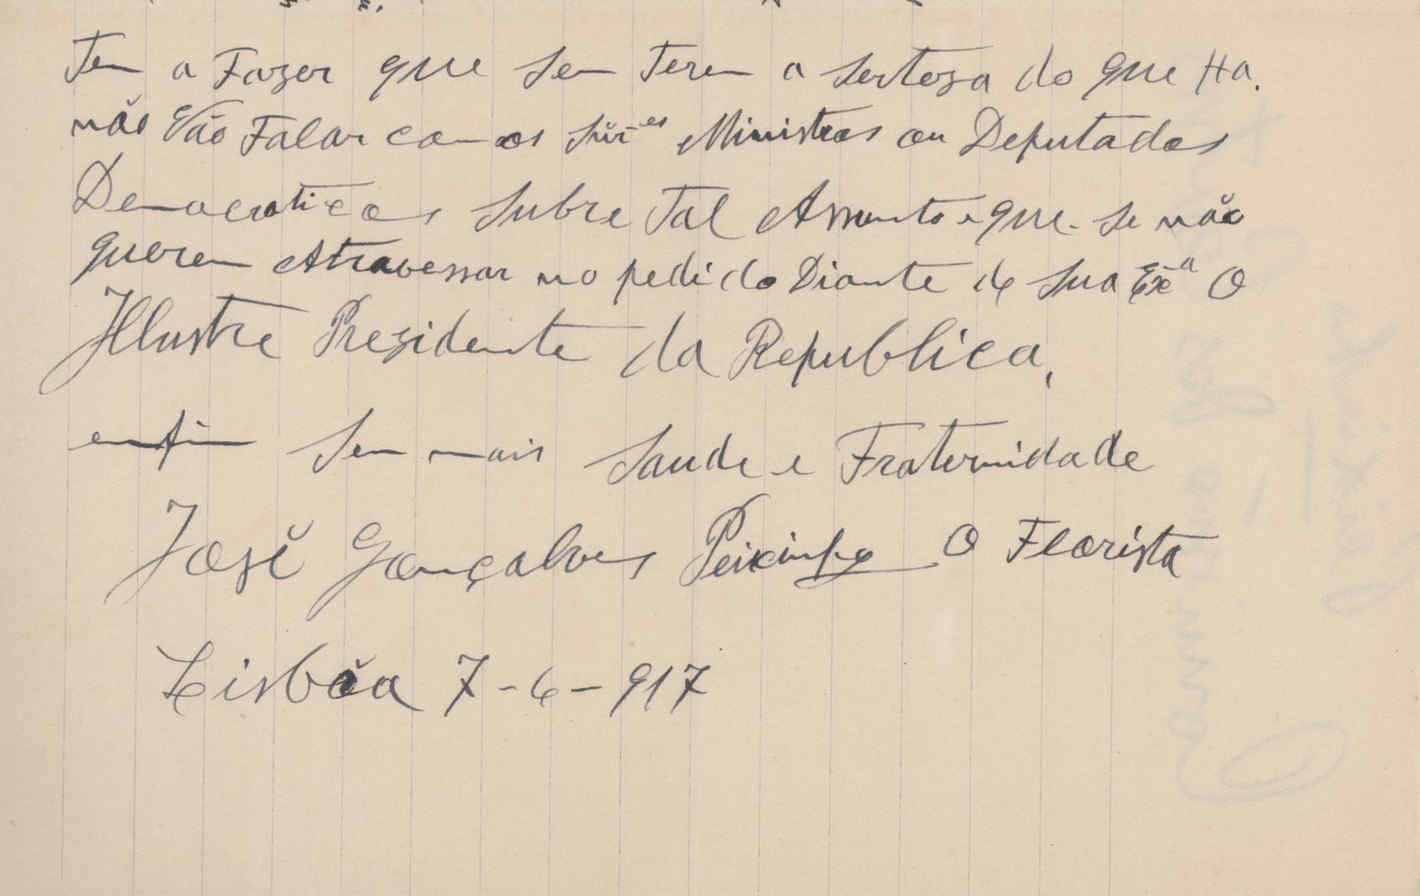 Tem a Fazer que sem Terem a serteza do que Ha.
não Vão Falar com os Snr.es Ministros ou Deputados
Democraticos Subre Tal Assunto e que se não
querem Atravessar no pedido Diante de Sua Exª O
Illustre Prezidente da Republica,
emfim Sem mais Saude e Fraternidade
José Gonçalves Peixinho O Florista
Lisbôa 7-6-917